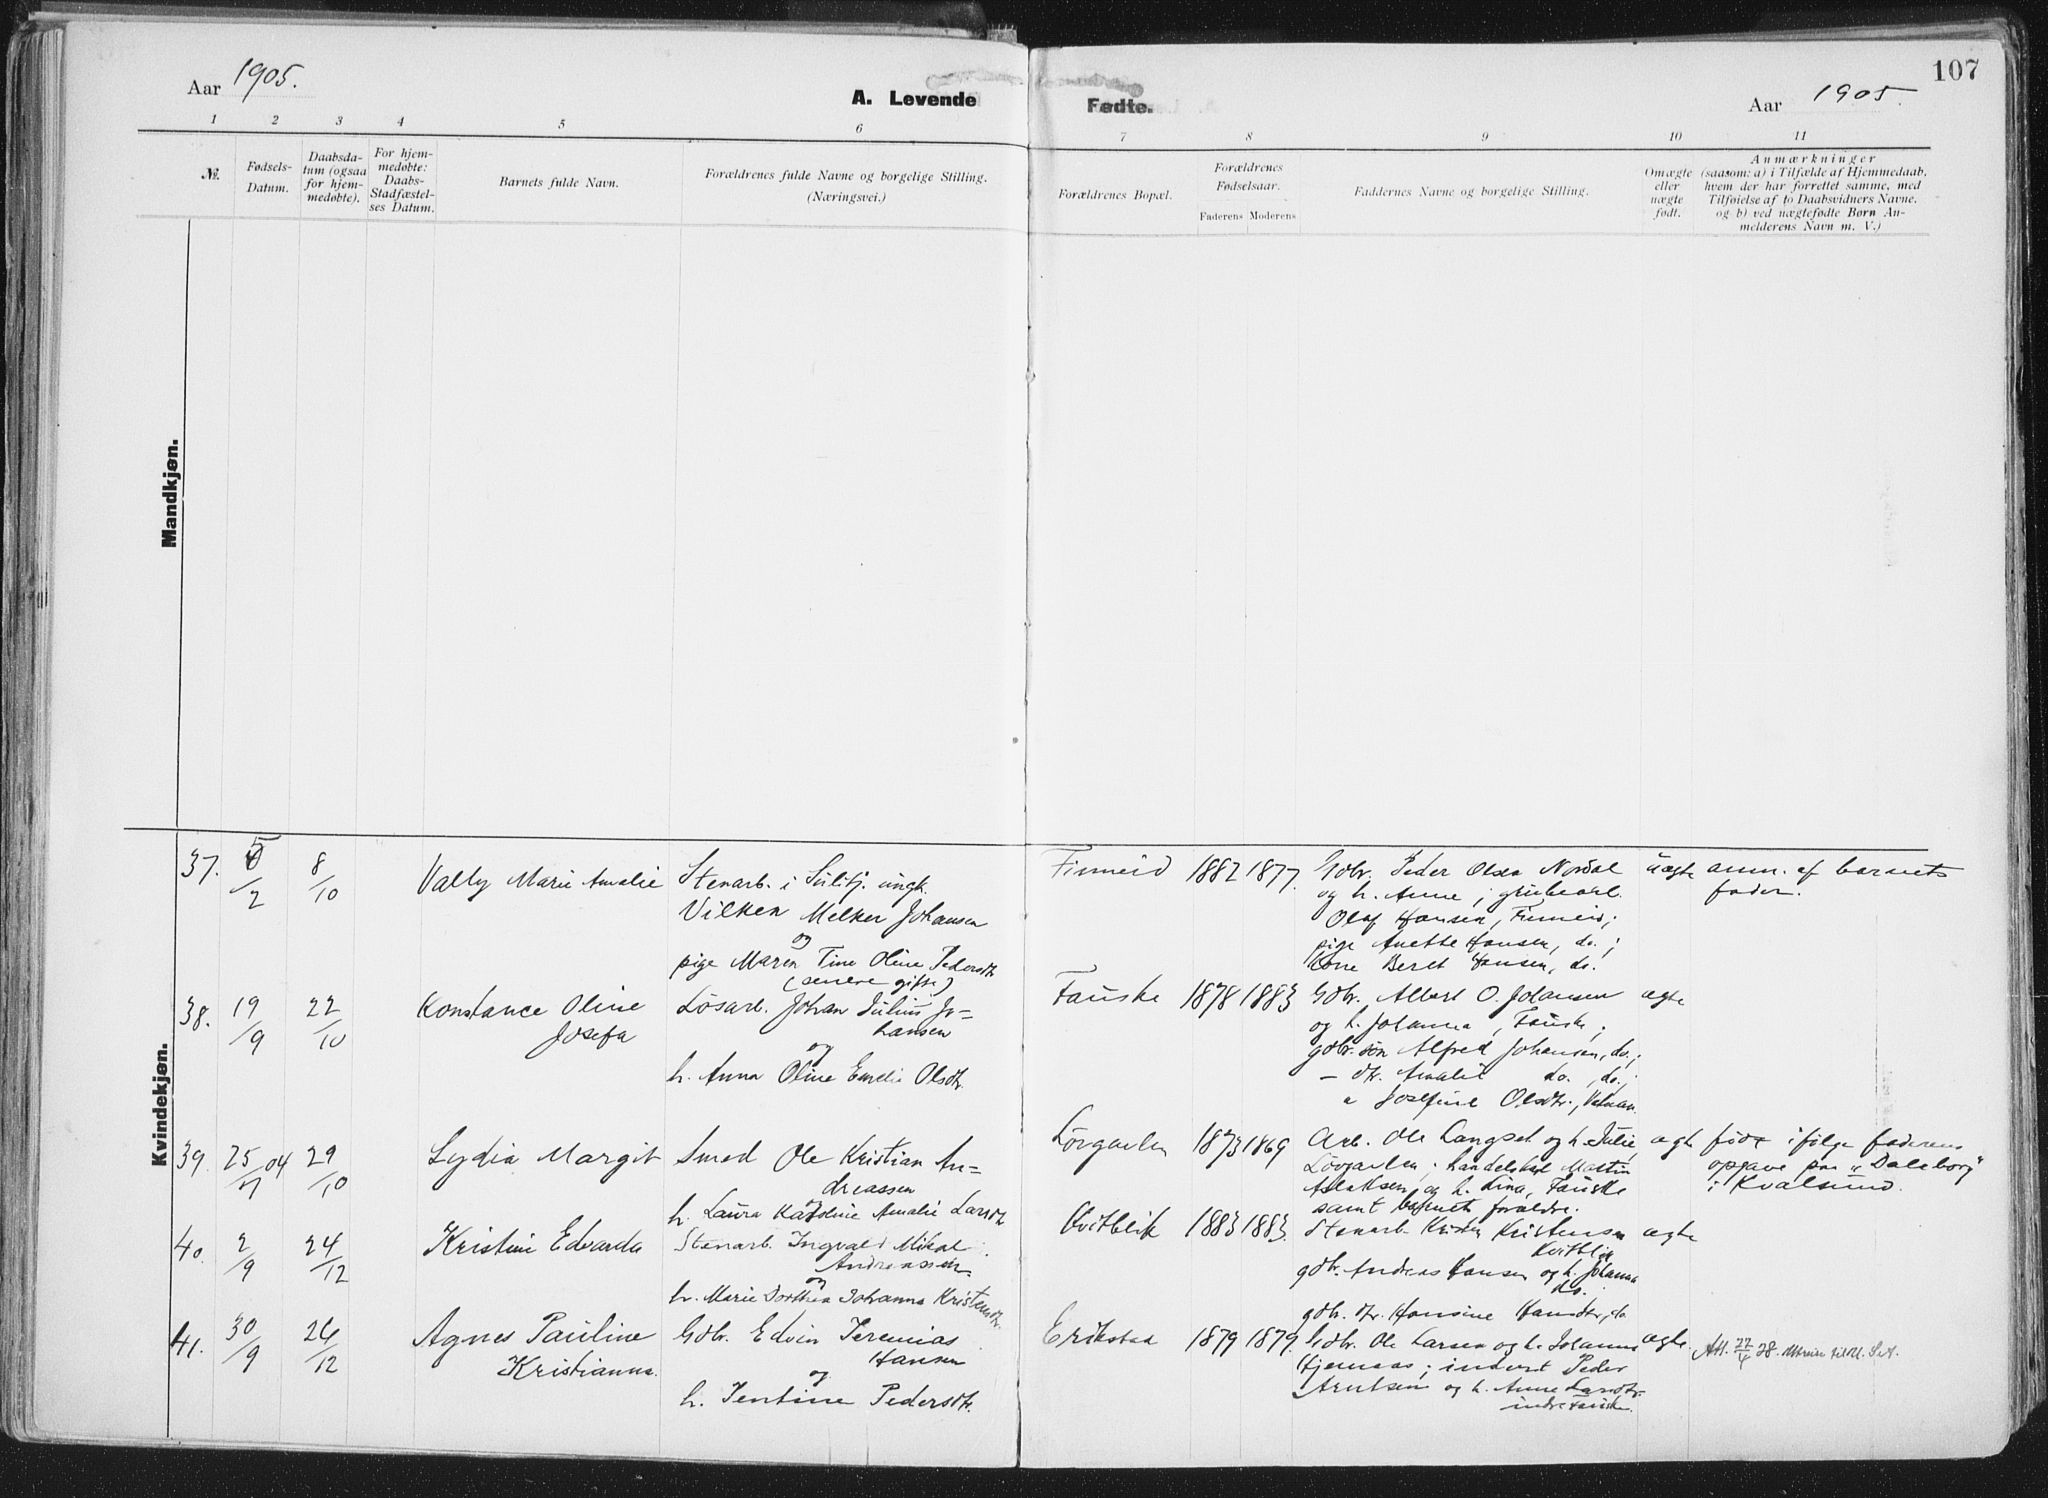 Aar 1905.
A. Levende
Fødte.
Aar 1905.
107
1 2 3 4 5 6 7 8 9 10 11
№.
Fødsels-
Datum.
Daabsda-
tum (ogsaa
for hjem-
medøbte).
For hjem-
medøbte:
Daabs-
Stadfæstel-
ses Datum.
Barnets fulde Navn.
Forældrenes fulde Navne og borgelige Stilling.
(Næringsvei.)
Forældrenes Bopæl.
Forældrenes
Fødselsaar.
Faderens Moderens
Faddernes Navne og borgelige Stilling.
Omægte
eller
nægte
født.
Anmærkninger
(saasom: a) i Tilfælde af Hjemmedaab,
hvem der har forrettet samme, med
Tilføielse af to Daabsvidners Navne,
og b) ved uægtefødte Børn An-
melderens Navn m. V.)
Mandkjøn.
Kvindekjøn.
37. 5/2 8/10
Vally Marie Amalie
Stenarb. i Sulitj. ungk.
Vilken Melker Johansen
og
pige Maren Tine Oline Pedersdtr
(senere gifte)
Finneid 1882 1877.
Gdbr. Peder Olsen Nordal
og h. Anne; grubearb.
Olaf Hansen, Finneid;
pige Anette Hansen, do.;
Kone Beret Hansen, do.
uægte
anm. af barnets
fader.
38. 19/9 22/10
Konstance Oline
Josefa
Løsarb. Johan Julius Jo-
hansen
og
h. Anna Oline Emelie Olsdtr.
Fauske 1878 1883
Gdbr. Albert O. Johansen
og h. Johanna, Fauske;
gdbr. søn Alfred Johansen, do.;
— dtr. Amalie do., do.;
" Josefine Olsdtr.,
ægte
39. 25/7 04 29/10
Lydia Margit
Smed Ole Kristian An-
dreassen
og
h. Laura Karoline Amalie Larsdtr
Løvgavlen 1873 1869
Arb. Ole Langset og h. Julie,
Løvgavlen; handelsbed. Martin
Aslaksen og h. Lina, Fauske
samt barnets forældre.
ægte
født ifølge faderens
opgave paa "Daleborg"
i Kvalsund.
40. 2/9 24/12
Kristine Edvarda
Stenarb. Ingvald Mikal
Andreassen
og
h. Marie Dorthea Johanna Kristensdtr.
Kvitblik 1883 1883.
Stenarb. Kristen Kristensen
Kvitblik
gdbr. Andreas Hansen og h. Johanna
do.
gdbr. dtr. Hansine Hansdtr, do
ægte
41. 30/9 26/12
Agnes Pauline
Kristianna.
Gdbr. Edvin Jeremias
Hansen
og
h. Jentine Pedersdtr.
Erikstad 1879 1879.
Gdbr. Ole Larsen og h. Johanna
; inderst Peder
Arntsen og h. Anne Larsdtr.
indre Fauske.
ægte.
Att. 27/4 28.